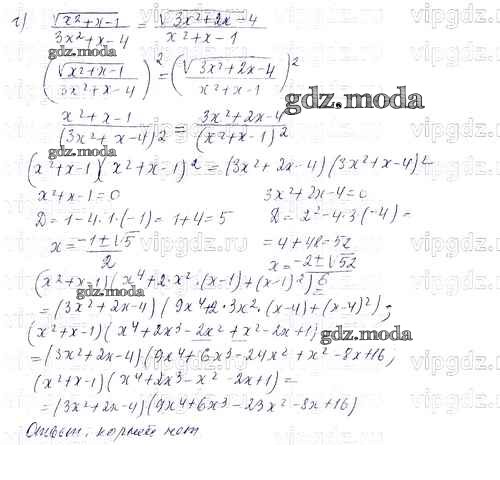 г) √(x²+x-1) / (3x²+x-4) = √(3x²+2x-4) / (x²+x-1)
gdz.moda
(√(x²+x-1) / (3x²+x-4))² = (√(3x²+2x-4) / (x²+x-1))²
gdz.moda
(x²+x-1) / (3x²+x-4)² = (3x²+2x-4) / (x²+x-1)²
gdz.moda
(x²+x-1)(x²+x-1)² = (3x²+2x-4)(3x²+x-4)²
x²+x-1=0 3x²+2x-4=0
D=1-4·1·(-1)=1+4=5 D=2²-4·3(-4)=
x=(-1±√5)/2 =4+48=52
x=(-2±√52)/6
(x²+x-1)(x⁴+2·x²·(x-1)+(x-1)²)
=(3x²+2x-4)(9x⁴+2·3x²·(x-4)+(x-4)²);
(x²+x-1)(x⁴+2x³-2x²+x²-2x+1)
gdz.moda
=(3x²+2x-4)(9x⁴+6x³-24x²+x²-8x+16;
(x²+x-1)(x⁴+2x³-x²-2x+1)=
=(3x²+2x-4)(9x⁴+6x³-23x²-8x+16)
Ответ: корней нет
vipgdz.ru